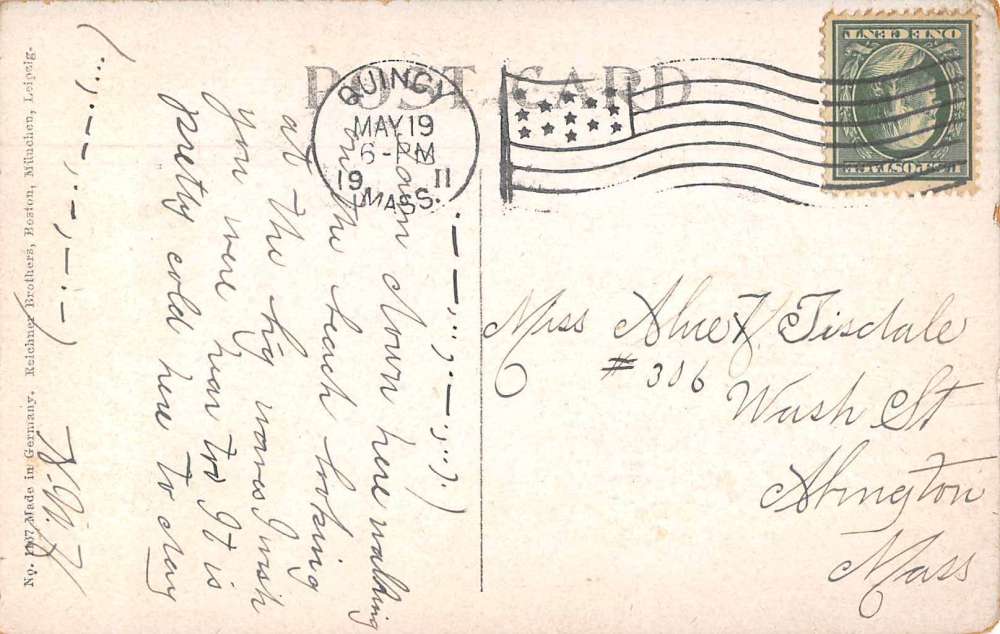 POST CARD
QUINCY
MAY 19
6-PM
19 11
MASS.
ONE CENT
U.S. POSTAGE
I am down here walking
on the beach looking
at the big waves I wish
you were hear too It is
pretty cold here to day
Miss Alice V. Tisdale
# 306
Wash St
Abington
Mass
No. 1267 Made in Germany. Reichner Brothers, Boston, München, Leipzig.